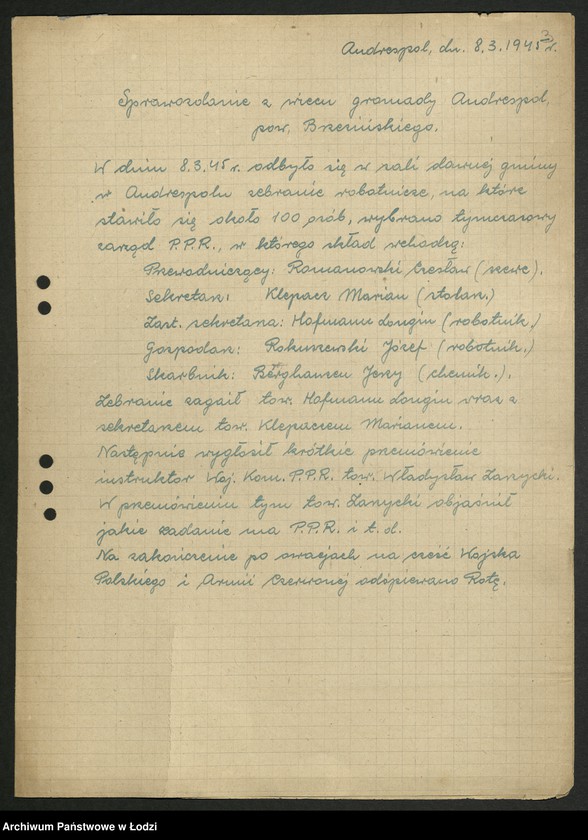 3
Andrespol, dn. 8.3.1945 r.
Sprawozdanie z wiecu gromady Andrespol,
pow. Brzezińskiego.
W dniu 8.3.45 r. odbyło się w sali dawnej gminy
w Andrespolu zebranie robotnicze, na które
stawiło się około 100 osób, wybrano tymczasowy
zarząd P.P.R., w którego skład wchodzą:
Przewodniczący: Romanowski Czesław (szewc).
Sekretarz: Klepacz Marian (stolarz.)
Zast. sekretarza: Hofmann Longin (robotnik.)
Gospodarz: Rokuszewski Józef (robotnik.)
Skarbnik: Berghauzen Jerzy (chemik.).
Zebranie zagaił tow. Hofmann Longin wraz z
sekretarzem tow. Klepaczem Marianem.
Następnie wygłosił krótkie przemówienie
instruktor Woj. Kom. P.P.R. tow. Władysław Zarzycki.
W przemówieniu tym tow. Zarzycki objaśnił
jakie zadanie ma P.P.R. i t. d.
Na zakończenie po owacjach na cześć Wojska
Polskiego i Armii Czerwonej odśpiewano Rotę.
Archiwum Państwowe w Łodzi